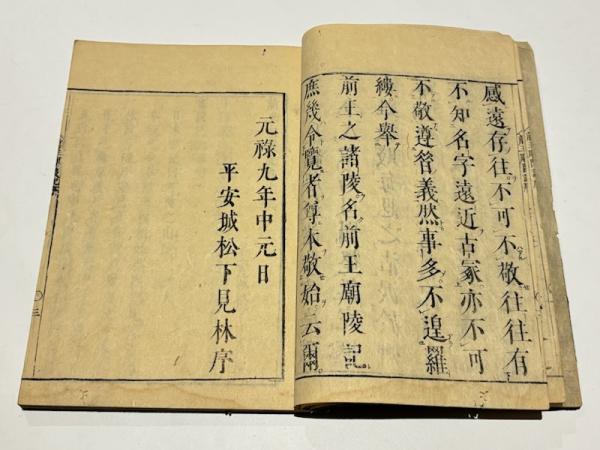 感遠存往不可不敬往往有
不知名字遠近古冢亦不可
不敬遵管義然事多不遑羅
縷今舉
前王之諸陵名前王廟陵記
庶幾令覽者尊本敬始云爾
元祿九年中元日
平安城松下見林序
〇三